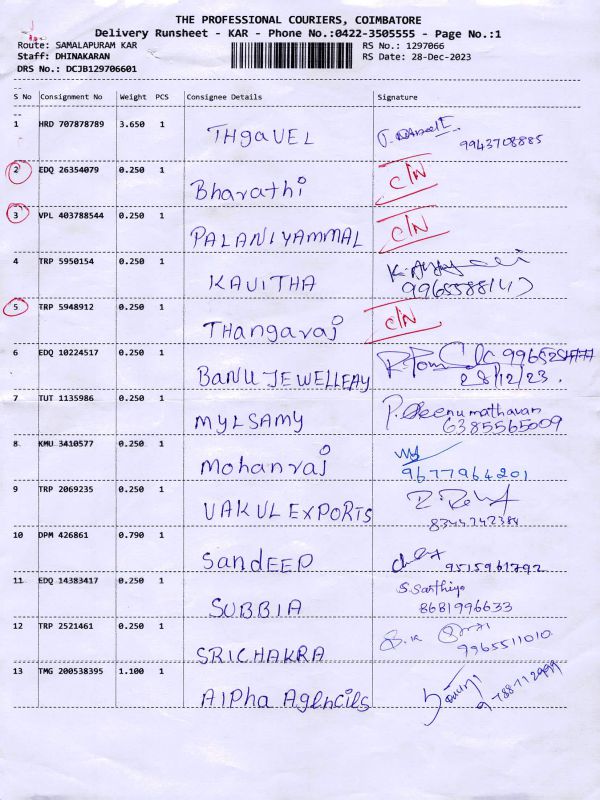 THE PROFESSIONAL COURIERS, COIMBATORE
Delivery Runsheet - KAR - Phone No.:0422-3505555 - Page No.:1
Route: SAMALAPURAM KAR RS No.: 1297066
Staff: DHINAKARAN RS Date: 28-Dec-2023
DRS No.: DCJB129706601
S No Consignment No Weight PCS Consignee Details Signature
1 HRD 707878789 3.650 1 THgaVEL 9943708885
2 EDQ 26354079 0.250 1 Bharathi C/N
3 VPL 403788544 0.250 1 PALANIYAMMAL C/N
4 TRP 5950154 0.250 1 KAVITHA
5 TRP 5948912 0.250 1 THangaraj C/N
6 EDQ 10224517 0.250 1 BANU JEWELLEAY
28/12/23.
7 TUT 1135986 0.250 1 MYLSAMY
6385565009
8 KMU 3410577 0.250 1 Mohanraj
9677964201
9 TRP 2069235 0.250 1 VAKUL EXPORTS
8344242384
10 DPM 426861 0.790 1 SandEEP 9515961792
11 EDQ 14383417 0.250 1 SUBBIA S. Santhiya
8681996633
12 TRP 2521461 0.250 1 SRICHAKRA 9965511010
13 TMG 200538395 1.100 1 AlPha AgEnciEs 9788712999